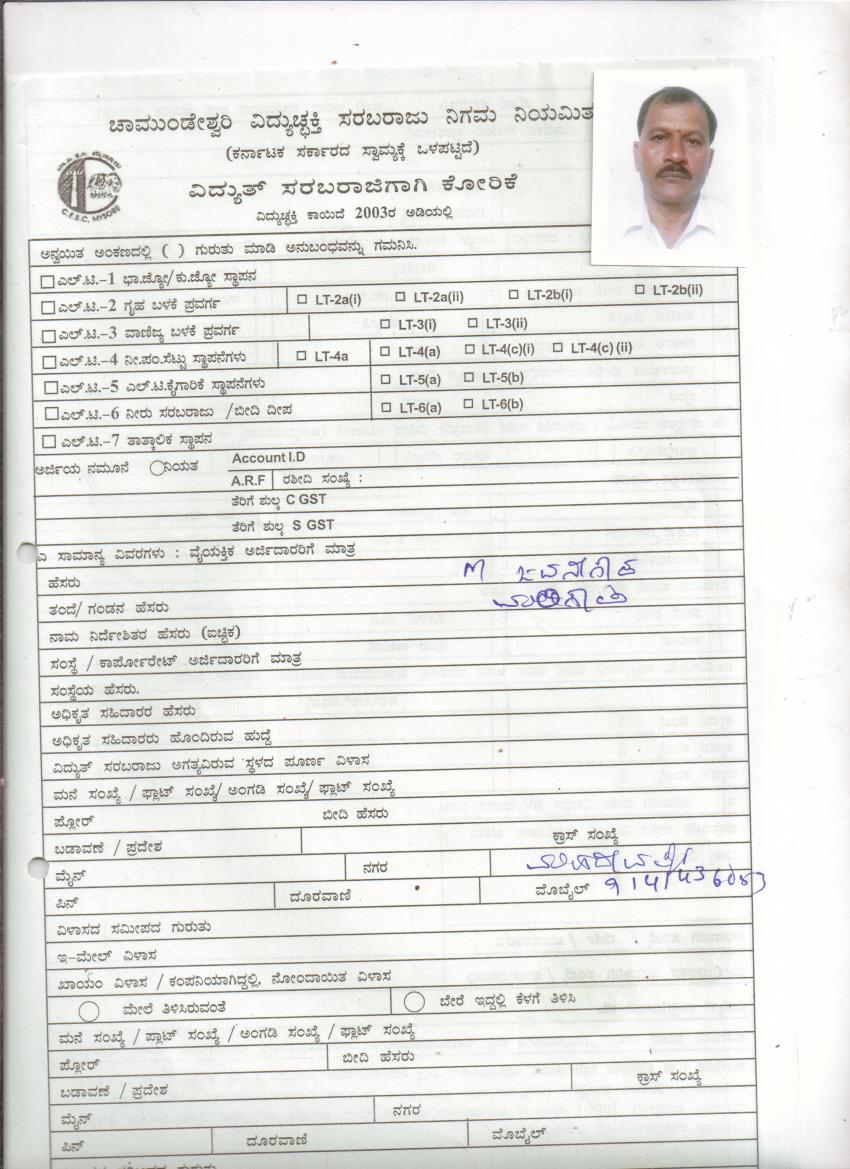 ಚಾಮುಂಡೇಶ್ವರಿ ವಿದ್ಯುಚ್ಛಕ್ತಿ ಸರಬರಾಜು ನಿಗಮ ನಿಯಮಿತ
(ಕರ್ನಾಟಕ ಸರ್ಕಾರದ ಸ್ವಾಮ್ಯಕ್ಕೆ ಒಳಪಟ್ಟಿದೆ)
C.E.S.C, MYSORE
ವಿದ್ಯುತ್ ಸರಬರಾಜಿಗಾಗಿ ಕೋರಿಕೆ
ವಿದ್ಯುಚ್ಛಕ್ತಿ ಕಾಯಿದೆ 2003ರ ಅಡಿಯಲ್ಲಿ
ಅನ್ವಯಿತ ಅಂಕಣದಲ್ಲಿ ( ) ಗುರುತು ಮಾಡಿ ಅನುಬಂಧವನ್ನು ಗಮನಿಸಿ.
ಎಲ್.ಟಿ.-1 ಭಾ.ಜ್ಯೋ/ಕು.ಜ್ಯೋ ಸ್ಥಾಪನ
ಎಲ್.ಟಿ.-2 ಗೃಹ ಬಳಕೆ ಪ್ರವರ್ಗ LT-2a(i) LT-2a(ii) LT-2b(i) LT-2b(ii)
ಎಲ್.ಟಿ.-3 ವಾಣಿಜ್ಯ ಬಳಕೆ ಪ್ರವರ್ಗ LT-3(i) LT-3(ii)
ಎಲ್.ಟಿ.-4 ನೀ.ಪಂ.ಸೆಟ್ಟು ಸ್ಥಾಪನೆಗಳು LT-4a LT-4(a) LT-4(c)(i) LT-4(c) (ii)
ಎಲ್.ಟಿ.-5 ಎಲ್.ಟಿ.ಕೈಗಾರಿಕೆ ಸ್ಥಾಪನೆಗಳು LT-5(a) LT-5(b)
ಎಲ್.ಟಿ.-6 ನೀರು ಸರಬರಾಜು /ಬೀದಿ ದೀಪ LT-6(a) LT-6(b)
ಎಲ್.ಟಿ.-7 ತಾತ್ಕಾಲಿಕ ಸ್ಥಾಪನ
ಅರ್ಜಿಯ ನಮೂನೆ ನಿಯತ Account I.D
A.R.F ರಶೀದಿ ಸಂಖ್ಯೆ :
ತೆರಿಗೆ ಶುಲ್ಕ C GST
ತೆರಿಗೆ ಶುಲ್ಕ S GST
ಎ ಸಾಮಾನ್ಯ ವಿವರಗಳು : ವೈಯಕ್ತಿಕ ಅರ್ಜಿದಾರರಿಗೆ ಮಾತ್ರ
ಹೆಸರು M
ತಂದೆ/ಗಂಡನ ಹೆಸರು
ನಾಮ ನಿರ್ದೇಶಿತರ ಹೆಸರು (ಐಚ್ಛಿಕ)
ಸಂಸ್ಥೆ / ಕಾರ್ಪೋರೇಟ್ ಅರ್ಜಿದಾರರಿಗೆ ಮಾತ್ರ
ಸಂಸ್ಥೆಯ ಹೆಸರು.
ಅಧಿಕೃತ ಸಹಿದಾರರ ಹೆಸರು
ಅಧಿಕೃತ ಸಹಿದಾರರು ಹೊಂದಿರುವ ಹುದ್ದೆ
ವಿದ್ಯುತ್ ಸರಬರಾಜು ಅಗತ್ಯವಿರುವ ಸ್ಥಳದ ಪೂರ್ಣ ವಿಳಾಸ
ಮನೆ ಸಂಖ್ಯೆ / ಫ್ಲಾಟ್ ಸಂಖ್ಯೆ/ ಅಂಗಡಿ ಸಂಖ್ಯೆ/ ಫ್ಲಾಟ್ ಸಂಖ್ಯೆ
ಫ್ಲೋರ್ ಬೀದಿ ಹೆಸರು
ಬಡಾವಣೆ / ಪ್ರದೇಶ ಕ್ರಾಸ್ ಸಂಖ್ಯೆ
ಮೈನ್ ನಗರ
ಪಿನ್ ದೂರವಾಣಿ ಮೊಬೈಲ್
ವಿಳಾಸದ ಸಮೀಪದ ಗುರುತು
ಇ-ಮೇಲ್ ವಿಳಾಸ
ಖಾಯಂ ವಿಳಾಸ / ಕಂಪನಿಯಾಗಿದ್ದಲ್ಲಿ, ನೋಂದಾಯಿತ ವಿಳಾಸ
ಮೇಲೆ ತಿಳಿಸಿರುವಂತೆ ಬೇರೆ ಇದ್ದಲ್ಲಿ ಕೆಳಗೆ ತಿಳಿಸಿ
ಮನೆ ಸಂಖ್ಯೆ / ಪ್ಲಾಟ್ ಸಂಖ್ಯೆ / ಅಂಗಡಿ ಸಂಖ್ಯೆ / ಫ್ಲಾಟ್ ಸಂಖ್ಯೆ
ಫ್ಲೋರ್ ಬೀದಿ ಹೆಸರು
ಬಡಾವಣೆ / ಪ್ರದೇಶ ಕ್ರಾಸ್ ಸಂಖ್ಯೆ
ಮೈನ್ ನಗರ
ಪಿನ್ ದೂರವಾಣಿ ಮೊಬೈಲ್